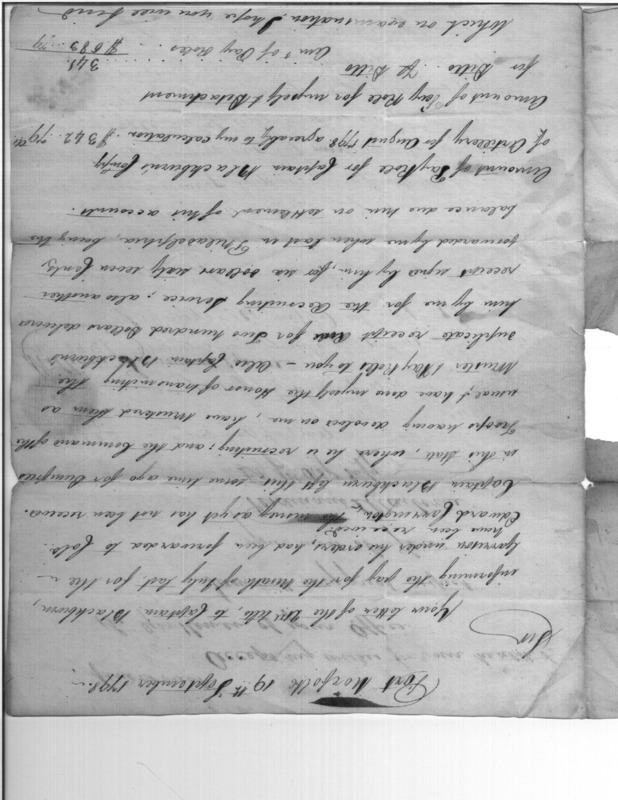 Fort Norfolk 19th September 1798
Sir
Your letter of the Ulto. to Captain Blackburn,
informing the pay for the Month of July last for the
Garrison under his orders, had been forwarded to Colo.
have been received
Edward Carrington, the money as yet has not been received.
Captain Blackburn left this, some time ago for Dumfries
in this State, where he is recruiting; and the Command of the
Troops having devolved on me, have Mustered them as
usual, & have now myself the Honor of transmitting the
Muster & Pay Roles to you — Also Captain Blackburn's
duplicate receipt for Two hundred Dollars delivered
him by me for the Recruiting Service; also another
receipt signed by him, for six dollars sixty seven Cents
forwarded by me when last in Philadelphia, being the
balance due him on settlement of his accounts.
Amount of Pay Role for Captain Blackburn's Compy
of Artillery for August 1798 agreeably to my calculation. $342..79
Amount of Pay Role for myself & Detachment
for Ditto
341
Amt. of Pay Roles $683..79
Which on examination I hope you will find
Accept my